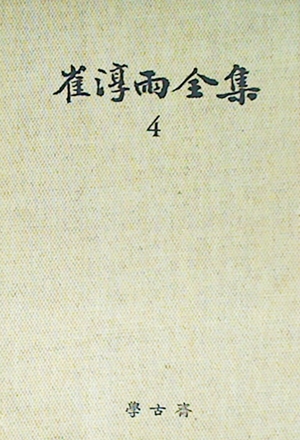 崔淳雨全集
4
學古齋